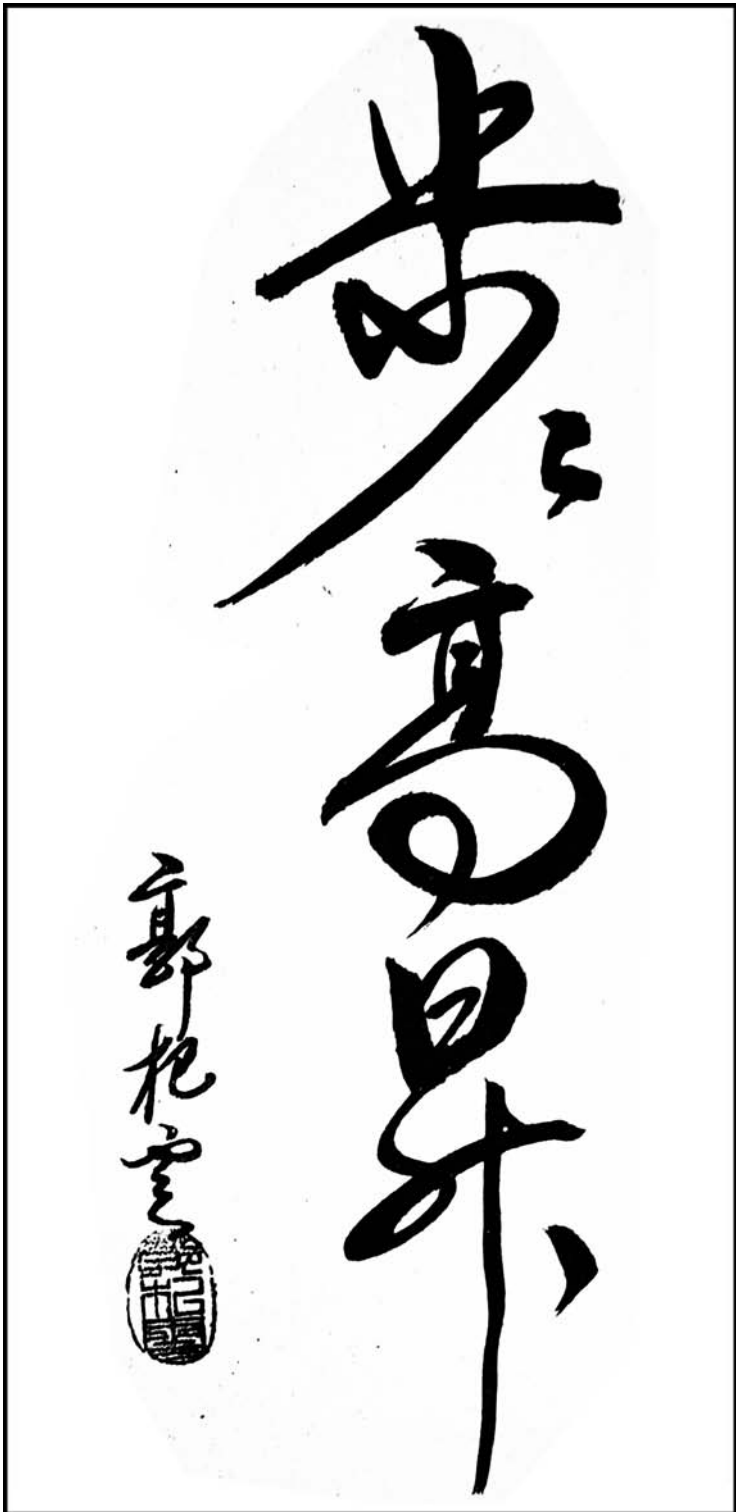 步々高昇
郭杞雲